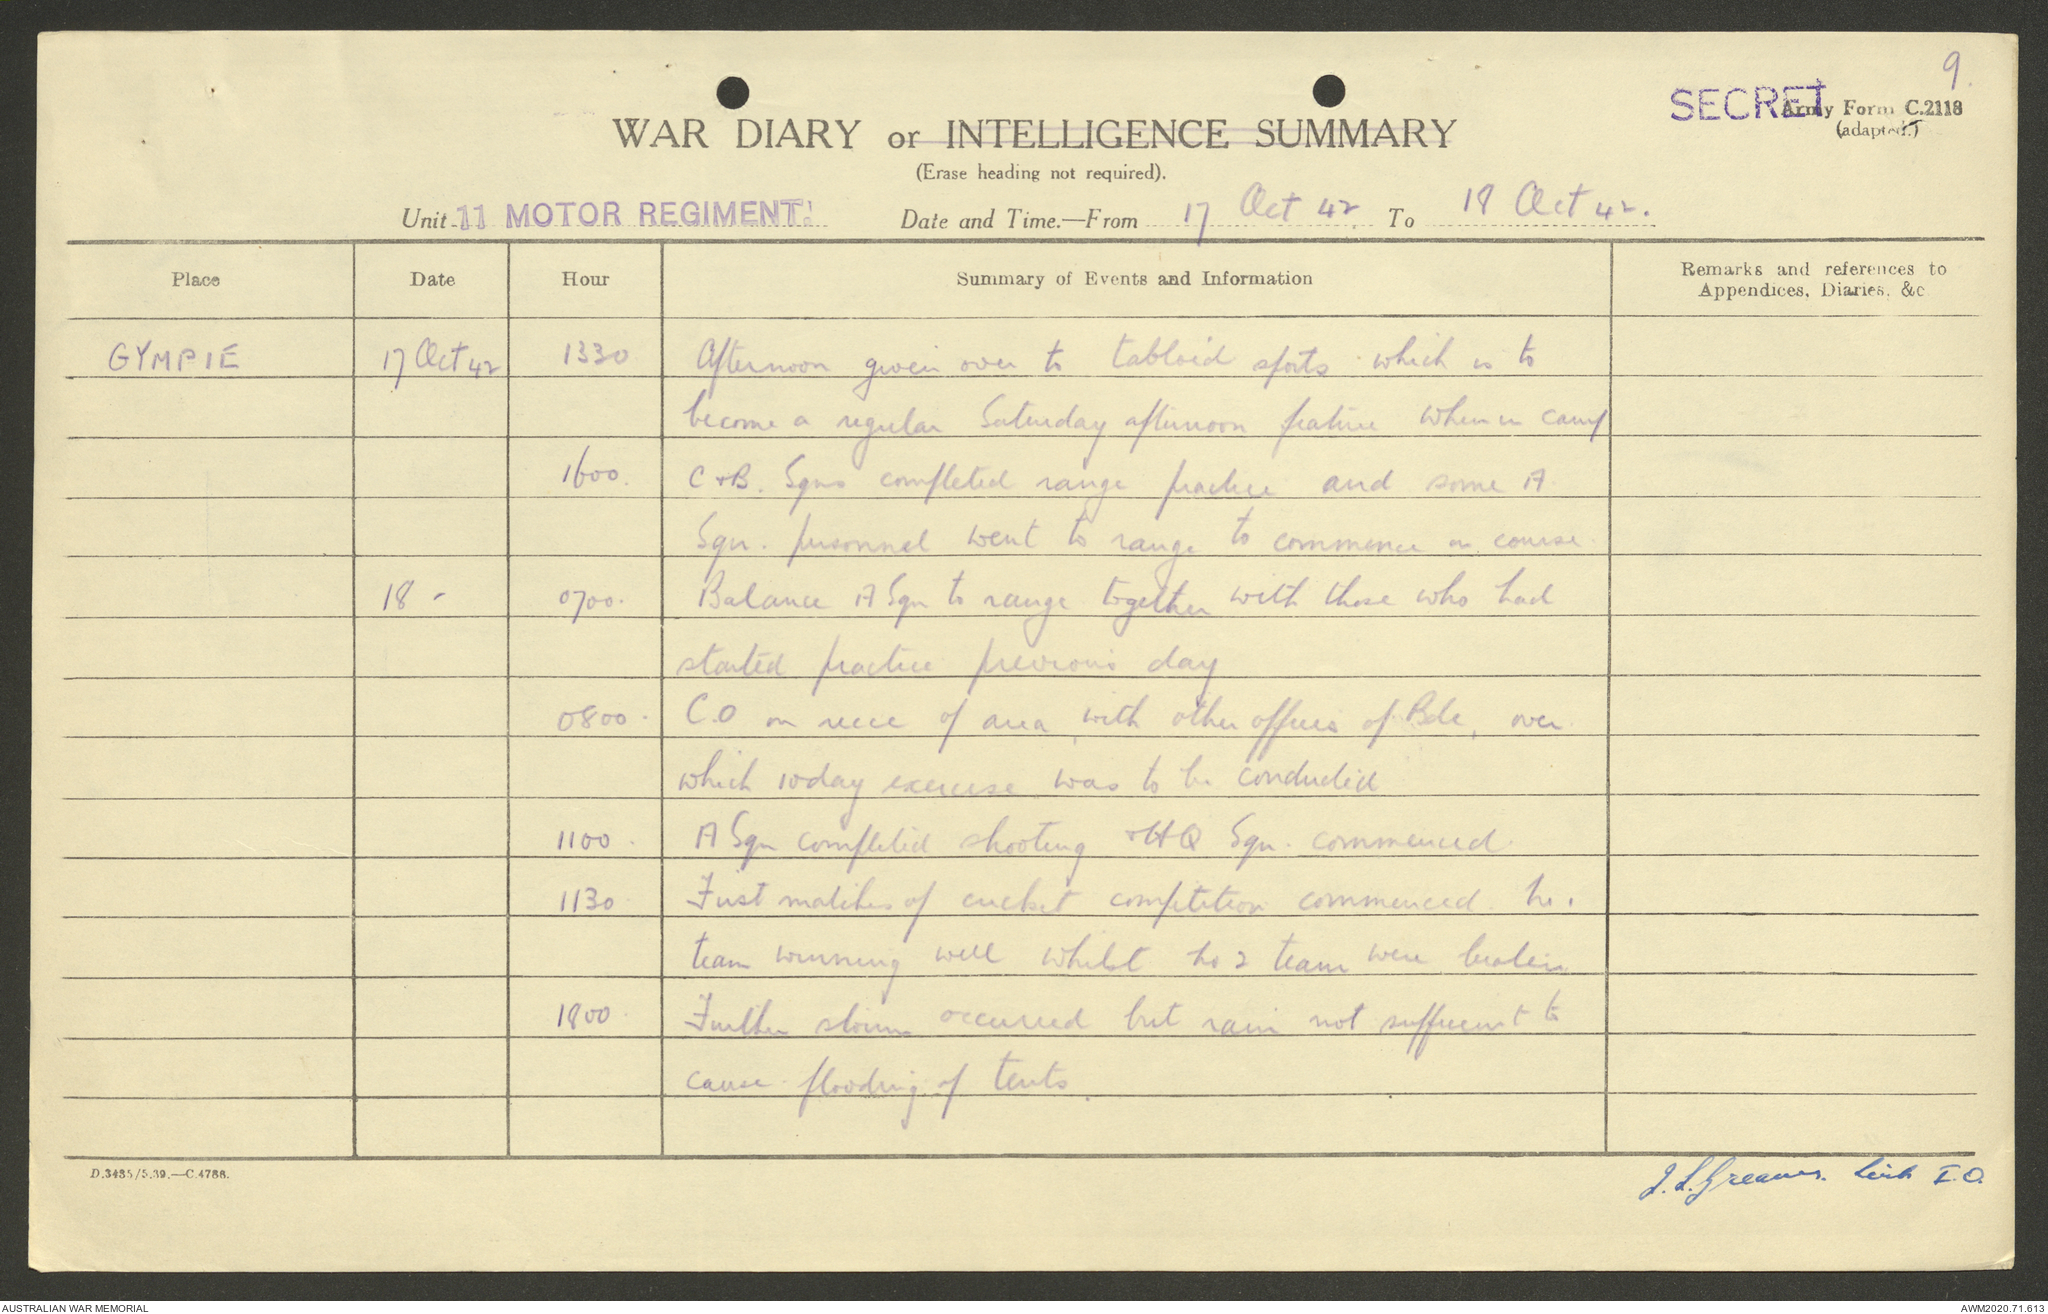 9.
SECRET
Army Form C.2118
(adapted.)
WAR DIARY or INTELLIGENCE SUMMARY
(Erase heading not required).
Unit 11 MOTOR REGIMENT. Date and Time.—From 17 Oct 42 To 18 Oct 42.
Place Date Hour Summary of Events and Information Remarks and references to
Appendices, Diaries, &c.
GYMPIE 17 Oct 42 1330 Afternoon given over to tabloid sports which is to
become a regular Saturday afternoon feature when in camp
1600. C & B. Sqns completed range practice and some A
Sqn. personnel went to range to commence course
18 - 0700. Balance A Sqn to range together with those who had
started practice previous day
0800. C.O on recce of area, with other officers of Bde, over
which 10 day exercise was to be conducted
1100. A Sqn completed shooting & HQ Sqn. commenced.
1130 First matches of cricket competition commenced. No. 1
team winning well whilst No 2 team were beaten
1800 Further storm occurred but rain not sufficient to
cause flooding of tents.
D.3435/5.39.—C.4788.
J.L. Greaves. Lieut I.O.
AUSTRALIAN WAR MEMORIAL
AWM2020.71.613